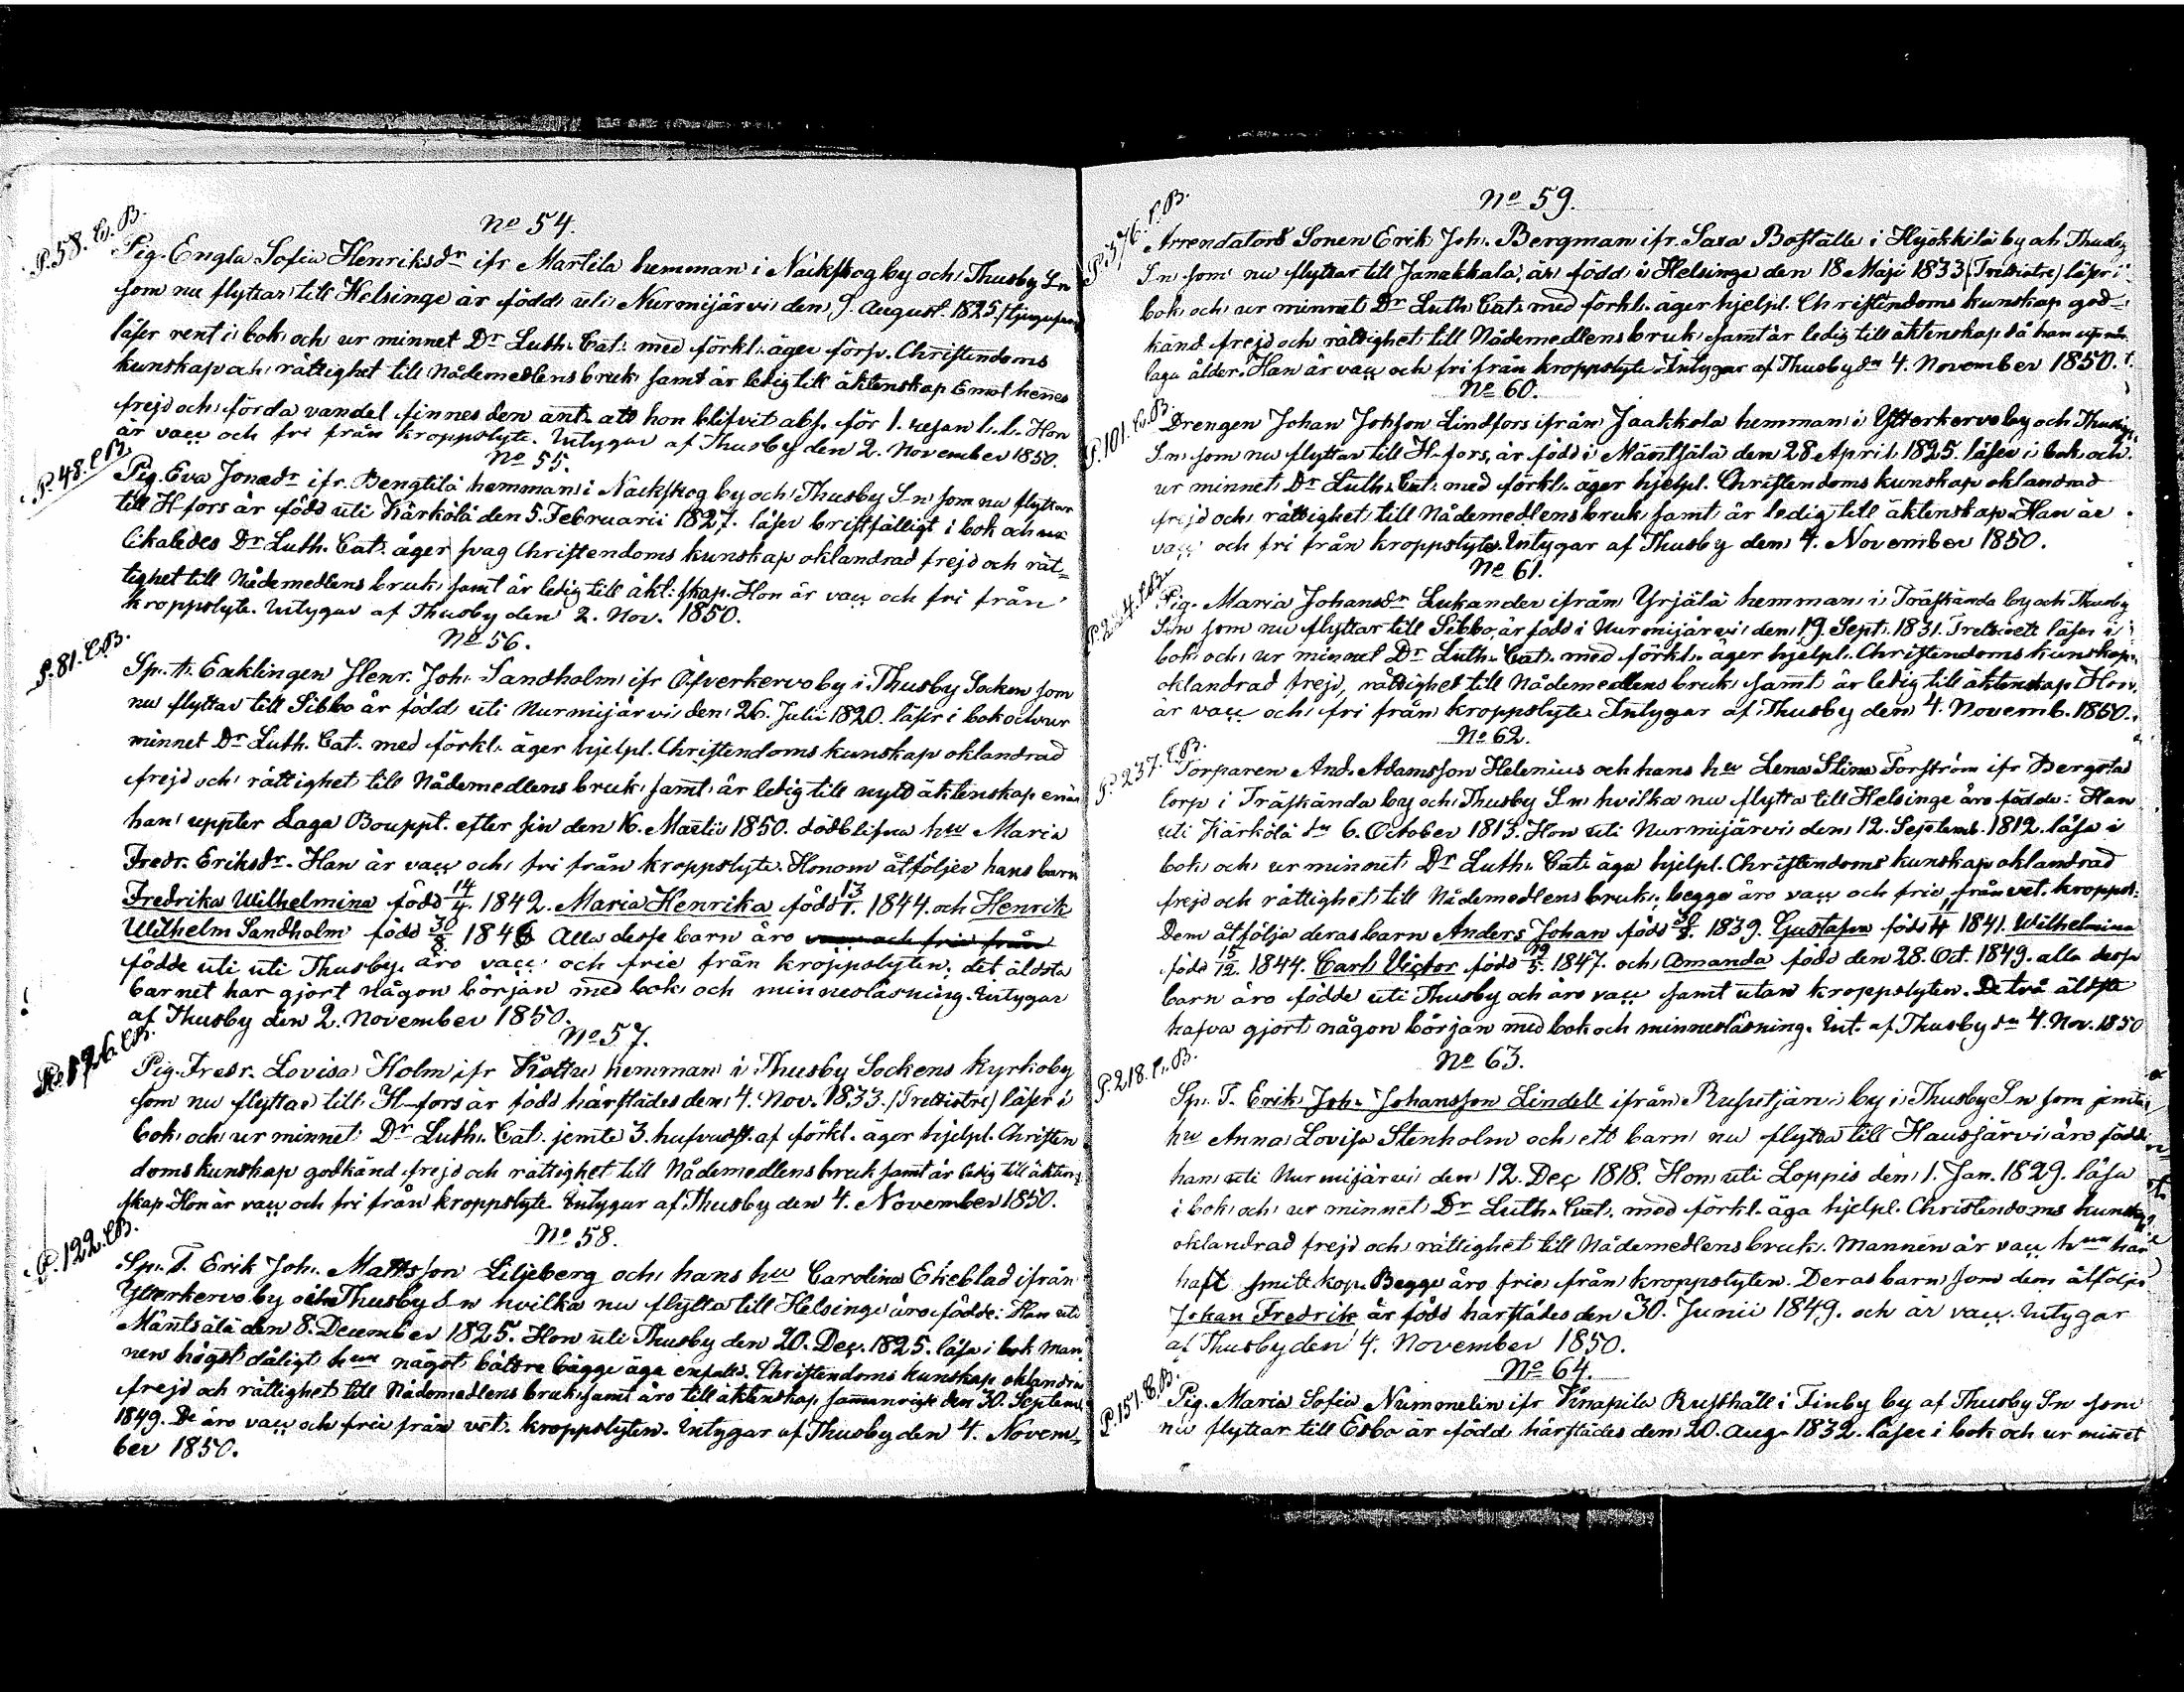 No 54.
P. 58. C. B.
Pig. Engla Sofia Henriksdr ifr Martila hemman i Näckskog by och Thusby Sn
som nu flyttar till Helsinge är född uti Nurmijärvi den 9. August. 1825.
läser rent i bok och ur minnet Dr Luth. Cat. med förkl. äger förs. Christendoms
kunskap och rättighet till Nådemedlens bruk samt är ledig till äktenskap Emot henes
frejd och förda vandel finnes den ant. att hon blifvit abs. för 1. resan l. l. Hon
är vacc och fri från kroppslyte. Intygar af Thusby den 2. November 1850.
No 55.
P. 48. C B.
Pig. Eva Jonædr ifr. Bengtilä hemman i Näckskog by och Thusby Sn som nu flyttar
till H fors är född uti Kärkölä den 5. Februarii 1827. läser bristfälligt i bok och
likaledes Dr Luth. Cat. äger svag Christendoms kunskap oklandrad frejd och rät=
tighet till Nådemedlens bruk samt är ledig till äkt: skap. Hon är vacc och fri från
kroppslyte. Intygar af Thusby den 2. Nov. 1850.
No 56.
P. 81. C. B.
Sp. t. Enklingen Henr. Joh. Sandholm ifr Öfverkervo by i Thusby Socken som
nu flyttar till Sibbo är född uti Nurmijärvi den 26. Julii 1820. läser i bok och ur
minnet Dr Luth. Cat. med förkl. äger hjelpl. Christendoms kunskap oklandrad
frejd och rättighet till Nådemedlens bruk samt är ledig till nytt äktenskap enär
han uppter Laga Bouppt. efter sin den 16. Martii 1850. dödblifna hu Maria
Fredr. Eriksdr. Han är vacc och fri från kroppslyte. Honom åtföljer hans barn
Fredrika Wilhelmina född 14/4. 1842. Maria Henrika född 13/1. 1844. och Henrik
Wilhelm Sandholm född 30/8. 1846 Alla desse barn äro vacc och frie från
födde uti uti Thusby. äro vacc och frie från kroppslyten. det äldsta
barnet har gjort någon början med bok och minnesläsning. Intygar
af Thusby den 2. November 1850.
No 57.
P. 126. C. B.
Pig. Fredr. Lovisa Holm ifr Kottu hemman i Thusby Sockens Kyrkoby
som nu flyttar till H-fors är född härstädes den 4. Nov. 1833. (Trettiotre) läser i
bok och ur minnet Dr Luth. Cat. jemte 3. hufvudst. af förkl. äger hjelpl. Christen
doms kunskap godkänd frejd och rättighet till Nådemedlens bruk samt är ledig till äkten=
skap. Hon är vacc och fri från kroppslyte. Intygar af Thusby den 4. November 1850.
No 58.
P. 122. C B.
Sp. T. Erik Joh. Mattsson Liljeberg och hans hu Carolina Ekeblad ifrån
Ytterkervo by och Thusby Sn hvilka nu flytta till Helsinge äro födde: Han uti
Mäntsälä den 8. December 1825. Hon uti Thusby den 20. Dec. 1825. läsa i bok Man
nen högst dåligt hun något bättre bägge äga enfald. Christendoms kunskap oklandrad
frejd och rättighet till Nådemedlens bruk samt äro till äktenskap sammanvigde den 30. Septem
1849. De äro vacc och frie från vet. kroppslyten. Intygar af Thusby den 4. Novem=
ber 1850.
No 59.
P. 376. C. B.
Arrendators Sonen Erik Joh. Bergman ifr. Saxa Boställe i Hyökkilä by och Thusby
Sn som nu flyttar till Janakkala, är född i Helsinge den 18 Maji 1833 (Trettiotre) läser i
bok och ur minnet Dr Luth. Cat. med förkl. äger hjelpl. Christendoms kunskap god-
känd frejd och rättighet till Nådemedlens bruk samt är ledig till äktenskap då han uppnår
laga ålder. Han är vacc och fri från kroppslyte. Intygar af Thusby dn 4. November 1850.
No 60.
P. 101. C. B.
Drengen Johan Johsson Lindfors ifrån Jaakkola hemman i Ytterkervo by och Thusby
Sn. som nu flyttar till H-fors, är född i Mäntsälä den 28 April 1825. läser i bok och
ur minnet Dr Luth. Cat. med förkl. äger hjelpl. Christendoms kunskap oklandrad
frejd och rättighet till Nådemedlens bruk samt är ledig till äktenskap. Han är
vacc och fri från kroppslyte. Intygar af Thusby den 4. November 1850.
No 61.
Pig. Maria Johansdr Lukander ifrån Yrjälä hemman i Träskända by och Thusby
Sn som nu flyttar till Sibbo, är född i Nurmijärvi den 19. Sept. 1831. Trettioett läser i
bok och ur minnet Dr Luth. Cat. med förkl. äger hjelpl. Christendoms kunskap,
oklandrad frejd, rättighet till Nådemedlens bruk samt är ledig till äktenskap. Hon
är vacc och fri från kroppslyte. Intygar af Thusby den 4. Novemb. 1850.
No 62.
P. 237. C B.
Torparen And. Adamsson Helenius och hans hu Lena Stina Forström ifr Bergsta
torp i Träskända by och Thusby Sn hvilka nu flytta till Helsinge äro födde: Han
uti Kärkölä dn 6. October 1813. Hon uti Nurmijärvi den 12. Septemb. 1812. läsa i
bok och ur minnet Dr Luth. Cat. äga hjelpl. Christendoms kunskap oklandrad
frejd och rättighet till Nådemedlens bruk. begge äro vacc och frie från vet. kroppsl.
Dem åtfölja deras barn Anders Johan född /8. 1839. Gustafva född 1841. Wilhelmina
född 15/12. 1844. Carl Victor född 19/5. 1847. och Amanda född den 28. Oct. 1849. alla desse
barn äro födde uti Thusby och äro vacc samt utan kroppslyten. De två äldsta
hafva gjort någon början med bok och minnesläsning. Int. af Thusby dn 4. Nov. 1850
No 63.
P. 218. C. B.
Sp. T. Erik Joh. Johansson Lindell ifrån Rusutjärvi by i Thusby Sn som jemte
hu Anna Lovisa Stenholm och ett barn nu flytta till Hausjärvi äro född
han uti Nurmijärvi den 12. Dec 1818. Hon uti Loppis den 1. Jan. 1829. läsa
i bok och ur minnet Dr Luth. Cat. med förkl. äga hjelpl. Christendoms kunskap
oklandrad frejd och rättighet till Nådemedlens bruk. Mannen är vacc hun har
haft smittkop. Begge äro frie från kroppslyten. Deras barn som dem åtföljer
Johan Fredrik är född härstädes den 30. Junii 1849. och är vacc. Intygar
af Thusby den 4. November 1850.
No 64.
P. 151. C. B.
Pig. Maria Sofia Nummelin ifr Knapila Rusthåll i Finby by af Thusby Sn som
nu flyttar till Esbo är född härstädes den 20. Aug. 1832. läser i bok och ur minnet